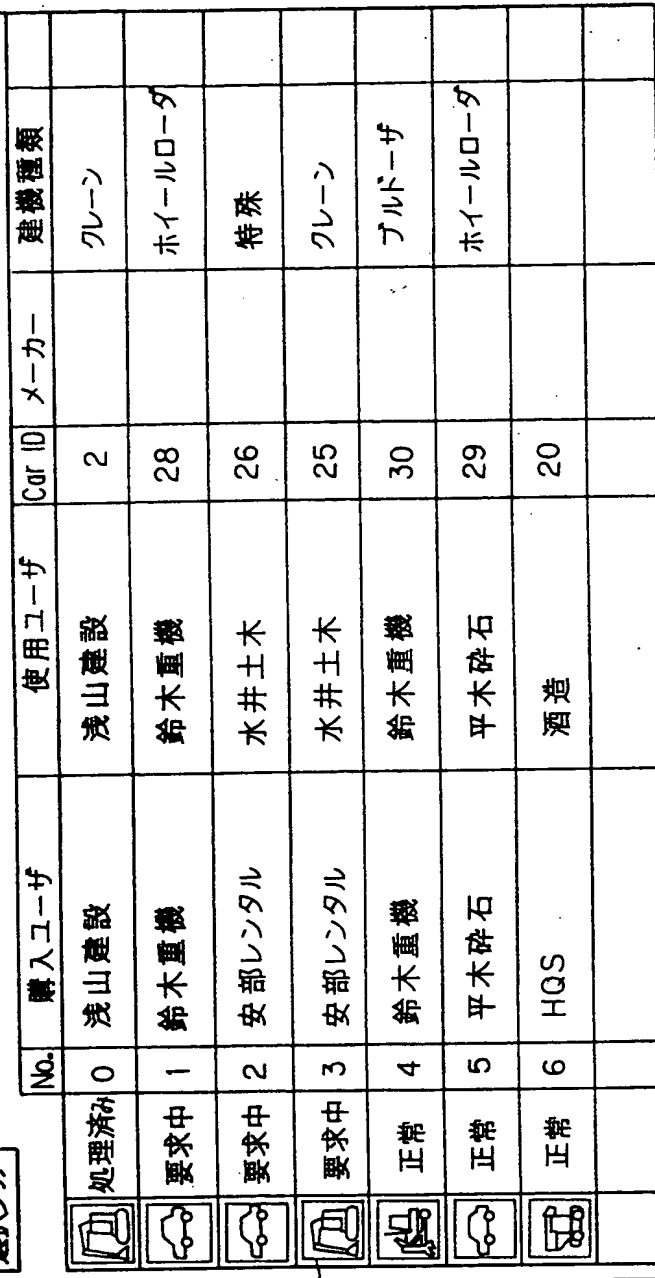 No. 購入ユーザ 使用ユーザ Car ID メーカー 建機種類
処理済み 0 浅山建設 浅山建設 2 クレーン
要求中 1 鈴木重機 鈴木重機 28 ホイールローダ
要求中 2 安部レンタル 水井土木 26 特殊
要求中 3 安部レンタル 水井土木 25 クレーン
正常 4 鈴木重機 鈴木重機 30 ブルドーザ
正常 5 平木砕石 平木砕石 29 ホイールローダ
正常 6 HQS 酒造 20